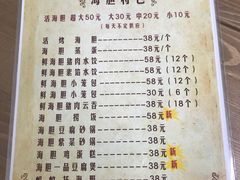 海胆特色
活海胆 每大50元 大30元 中20元 小10元
(每天不定供应)
活烤海胆——38元/个
海胆蒸蛋——38元/个
鲜海胆猪肉水饺——58元(12个)
鲜海胆韭菜水饺——58元(12个)
鲜海胆小笼包——58元(12个)
鲜海胆小笼包——30元(6个)
鲜海胆猪肉云吞——38元(18个)
海胆捞饭——58元 新
海胆豆腐砂锅——38元
海胆紫菜砂锅——38元
海胆鸡蛋糕——38元 新
海胆一品豆腐煲——38元 新